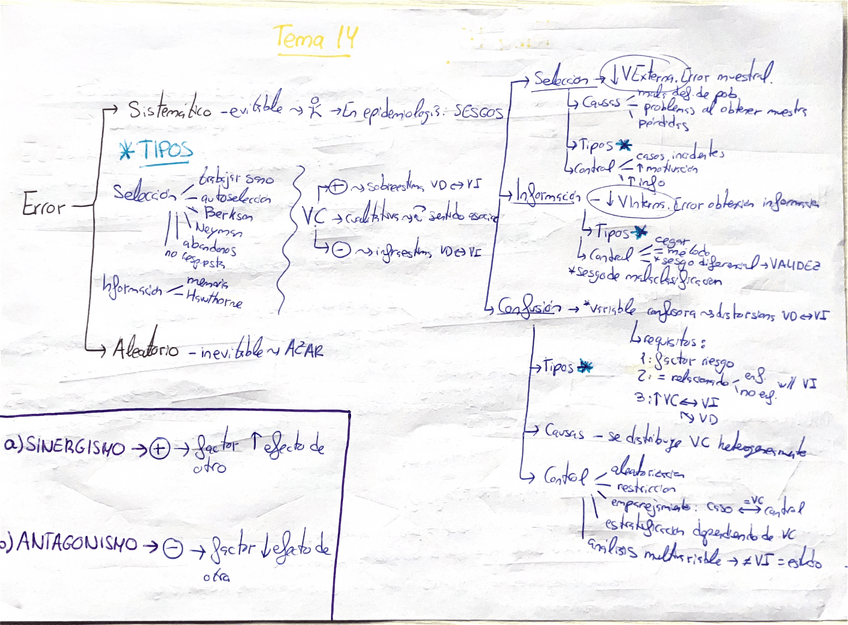 Tema 14
Error
Sistemático - evitable → En epidemiología: SESGOS
* TIPOS
Selección
trabajador sano
autoselección
Berkson
Neyman
abandonos
no respuesta
Información
memoria
Hawthorne
VC
+ → sobreestima VD ↔ VI
→ cualitativa → sentido
- → infraestima VD ↔ VI
Aleatorio - inevitable → AZAR
Selección → ↓ V Externa. Error muestral.
Causas
mala def de pob.
problemas al obtener muestra
pérdidas
Tipos *
Control
casos incidentes
↑ motivación
↑ info
Información - ↓ V Interna. Error obtención información
Tipos *
Control
cegar
= método
* sesgo diferencial → VALIDEZ
* sesgo de mala clasificación
Confusión → * variable confusora → distorsiona VD ↔ VI
requisitos:
1: factor riesgo
2: = relacionado
enf.
no enf.
VI
3: ↑ VC ↔ VI
VD
Tipos *
Causas - se distribuye VC heterogéneamente
Control
aleatorización
restricción
emparejamiento: caso ↔ control
=VC
estratificación dependiendo de VC
análisis multivariable → ≠ VI =
a) SINERGISMO → + → factor ↑ efecto de
otro
b) ANTAGONISMO → - → factor ↓ efecto de
otro